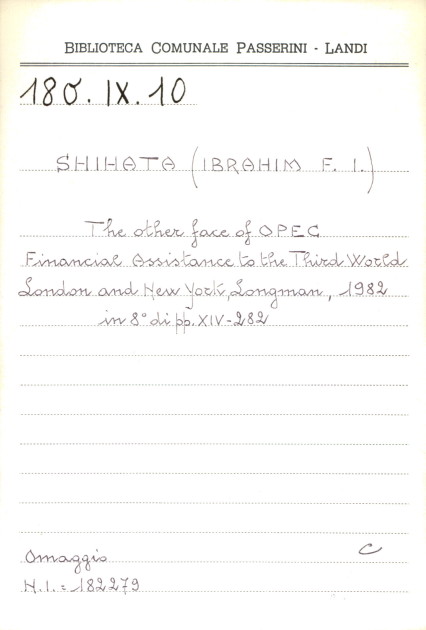 BIBLIOTECA COMUNALE PASSERINI - LANDI
180. IX. 10
SHIHATA (IBRAHIM F. I.)
The other face of OPEC
Financial Assistance to the Third World
London and New York, Longman, 1982
in 8° di pp. XIV-282
Omaggio C
N.I. = 182279